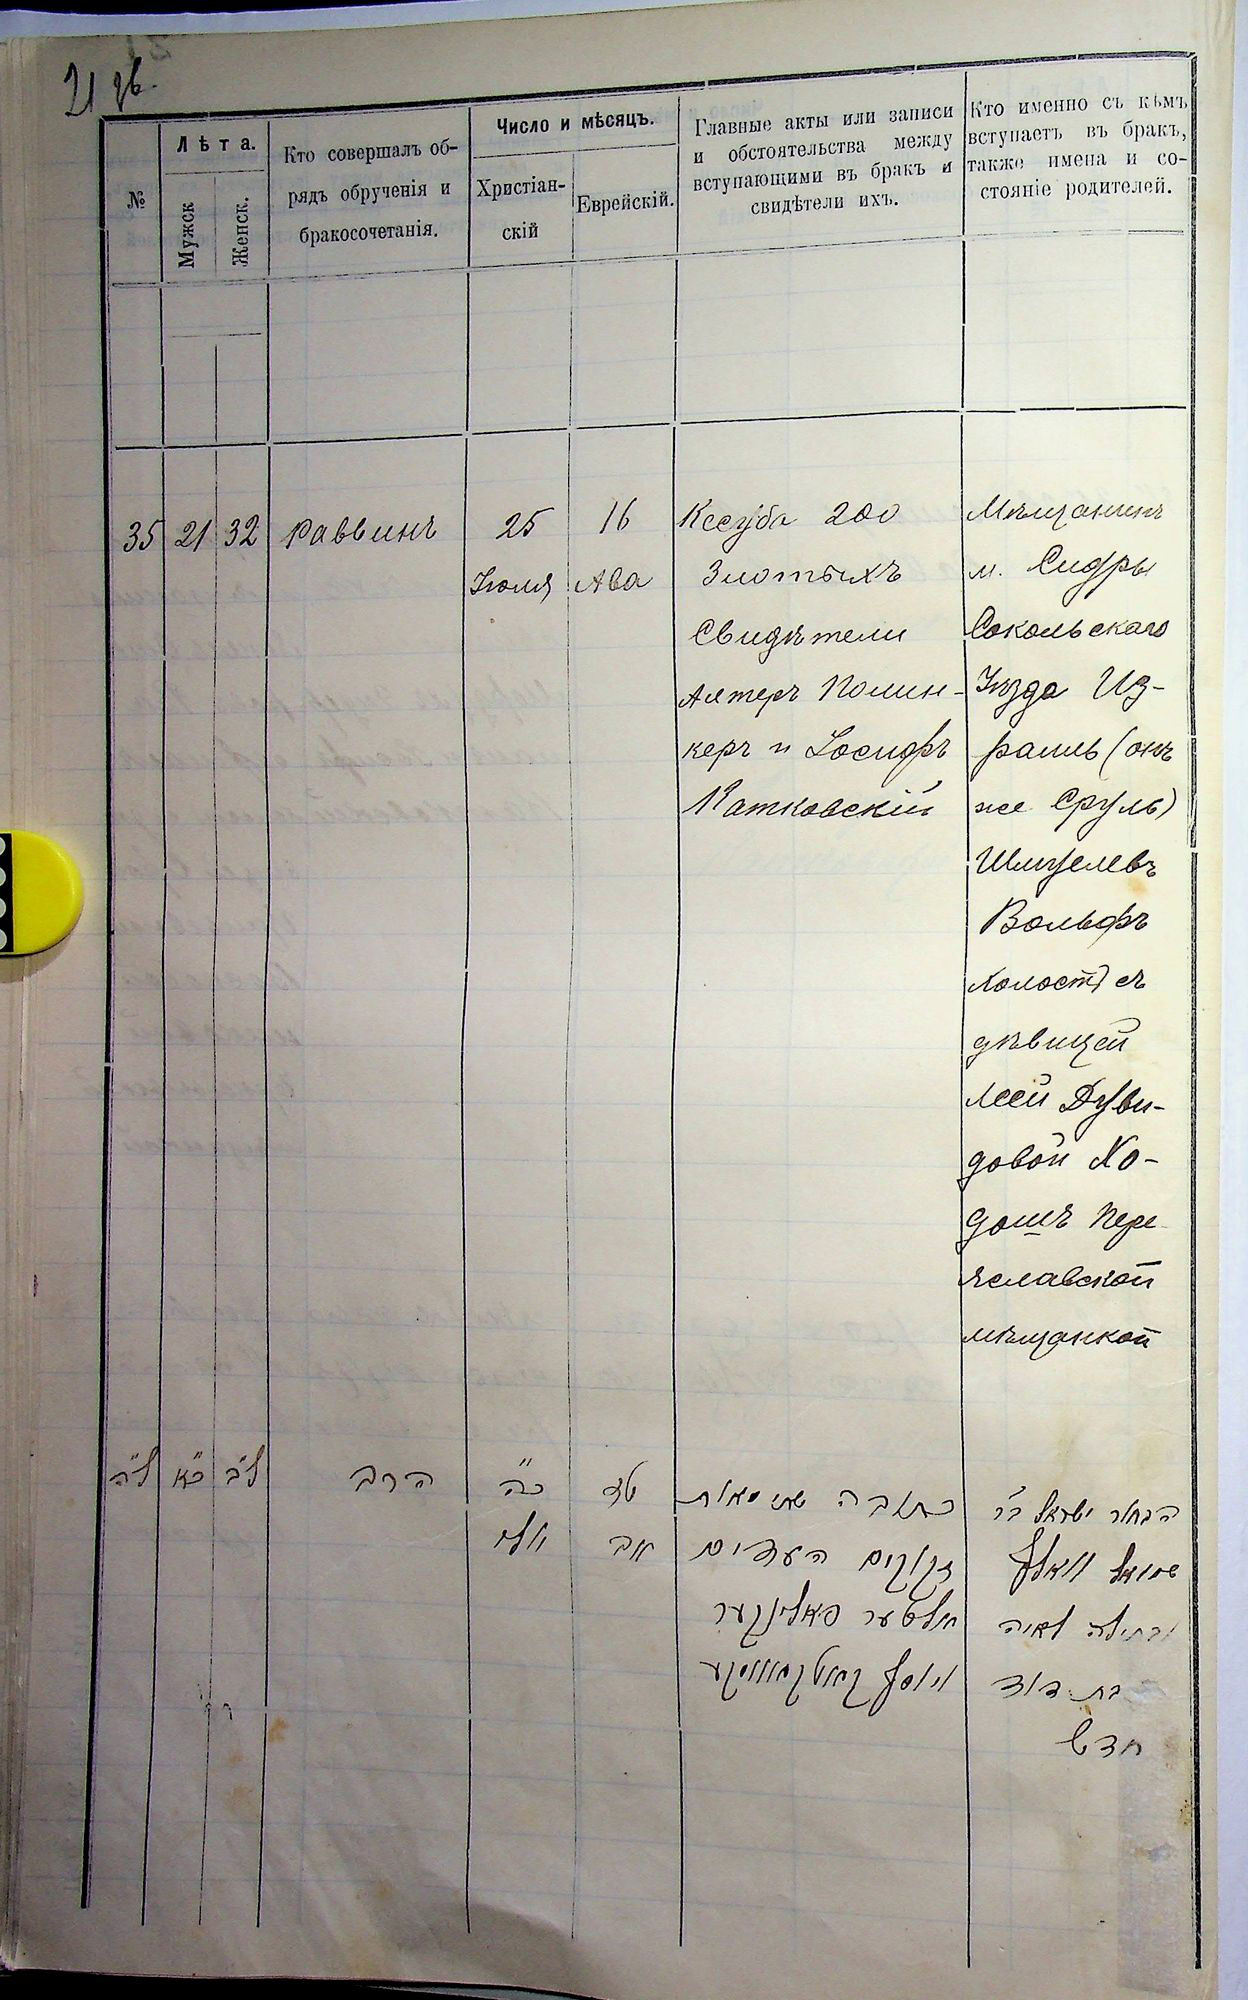 21 зв.
№
Лѣта.
Мужск
Женск.
Кто совершалъ об-
рядъ обрученія и
бракосочетанія.
Число и мѣсяцъ.
Христіан-
скій
Еврейскій.
Главные акты или записи
и обстоятельства между
вступающими въ бракъ и
свидѣтели ихъ.
Кто именно съ кѣмъ
вступаетъ въ бракъ,
также имена и со-
стояніе родителей.
35
21
32
Раввинъ
25
Іюля
16
Ава
Кесуба 200
Злотыхъ
Свидѣтели
Алтеръ Полин-
керъ и Іосифъ
Катковскій
Мѣщанинъ
м. Сидры
Сокольскаго
Уѣзда Из-
раиль (онъ
же Сруль)
Шмуелевъ
Вольфъ
холост) съ
дѣвицей
Леей Дуви-
довой Хо-
дошъ Пере
яславской
мѣщанкой
ל״ה
כ״א
ל״ב
הרב
כ״ה
יולי
טז
אב
כתובה שתי מאות
זקוקים העדים
אלטער פאלינקער
ויוסף קאטקאווסקי
הבחור ישראל ב״ר
שמואל וואלף
ובתולה לאיה
בת דוד
חדש